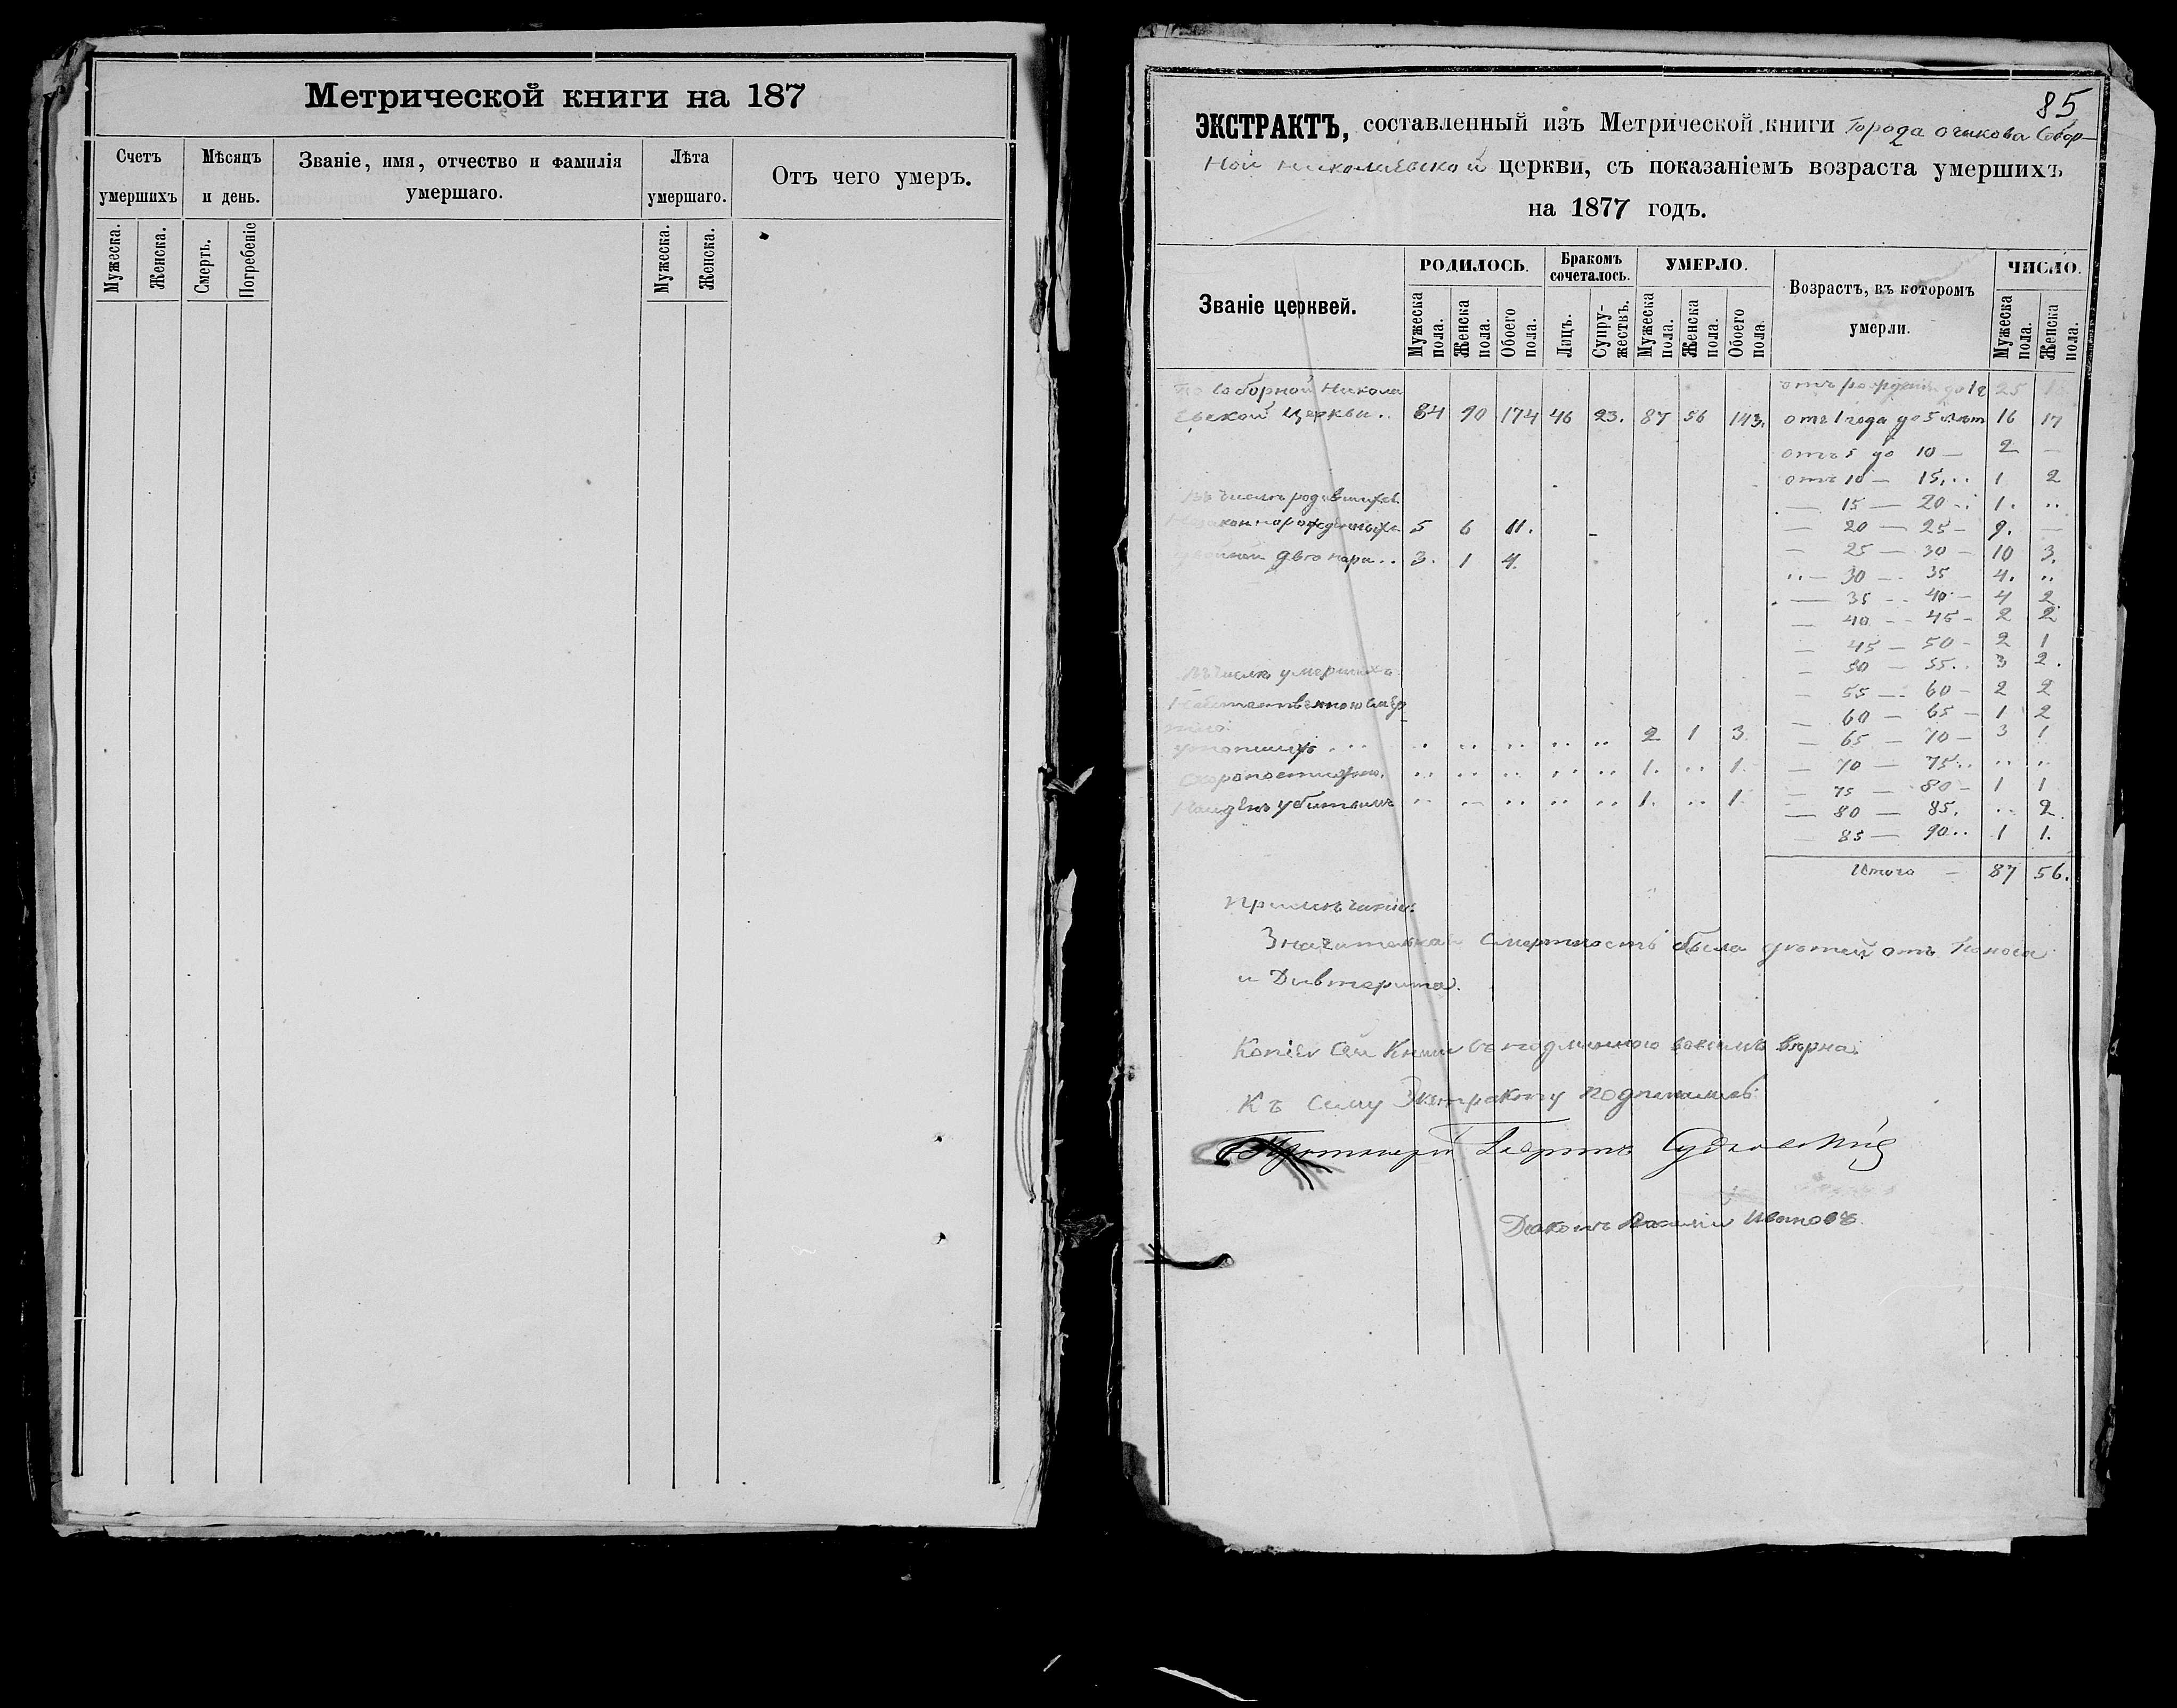 Метрической книги на 187
Счетъ умершихъ
Мѣсяцъ и день.
Званіе, имя, отчество и фамилія
умершаго.
Лѣта умершаго.
Отъ чего умеръ.
Мужеска. Женска. Смерть. Погребеніе Мужеска. Женска.
85
ЭКСТРАКТЪ, составленный изъ Метрической книги Города Очакова Собор-
ной Николаевской церкви, съ показаніемъ возраста умершихъ
на 1877 годъ.
Званіе церквей.
РОДИЛОСЬ.
Бракомъ сочеталось.
УМЕРЛО.
Возрастъ, въ которомъ
умерли.
ЧИСЛО.
Мужеска пола. Женска пола. Обоего пола. Лицъ. Супружествъ. Мужеска пола. Женска пола. Обоего пола. Мужеска пола. Женска пола.
По Соборной Никола отъ рожденія до 1 г 25
евской Церкви.. 84 90 174 46 23. 87 56 143. отъ 1 года до 5 лѣт 16 17
отъ 5 до 10 — 2 —
отъ 10 — 15... 1 2
Въ числѣ родившихся
— 15 — 20 .. 1. ..
Незаконнорожденныхъ 5 6 11. — 20 — 25 — 9. —
— 25 — 30 — 10 3.
двойней двѣ пары.. 3. 1 4.
— 30 — 35 4. ..
— 35 — 40 — 4 2.
— 40 — 45 — 2 2
— 45 — 50 — 2 1
— 50 — 55.. 3 2.
Въ числѣ умершихъ
— 55 — 60 — 2 2
— 60 — 65 — 1 2
утопшихъ ... . .. .. .. .. 2 1 3 — 65 — 70 — 3 1
скоропостижно. .. .. .. .. .. 1. .. 1. — 70 — 75.. .. ..
— 75 — 80 — 1 1
Найденъ убитымъ .. — .. .. .. 1. .. 1. — 80 — 85. .. 2.
— 85 — 90.. 1 1.
Итого — 87 56.
Примѣчаніе.
Значительная смертность была дѣтей отъ поноса
и Дивтерита.
Копія сей Книги съ подлинною во всемъ вѣрна.
Къ сему Экстракту подписались:
Протоіерей Гавріилъ Судковскій
Діаконъ Василій Ивановъ.